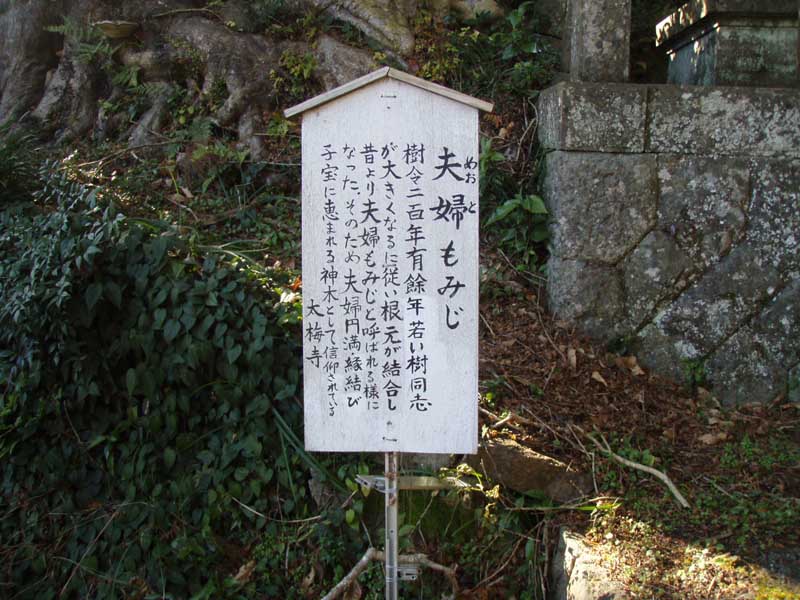 夫婦もみじ
めおと
樹令二百年有餘年若い樹同志
が大きくなるに従い根元が結合し
昔より夫婦もみじと呼ばれる様に
なった。そのため夫婦円満・縁結び
子宝に恵まれる神木として信仰されている
太梅寺